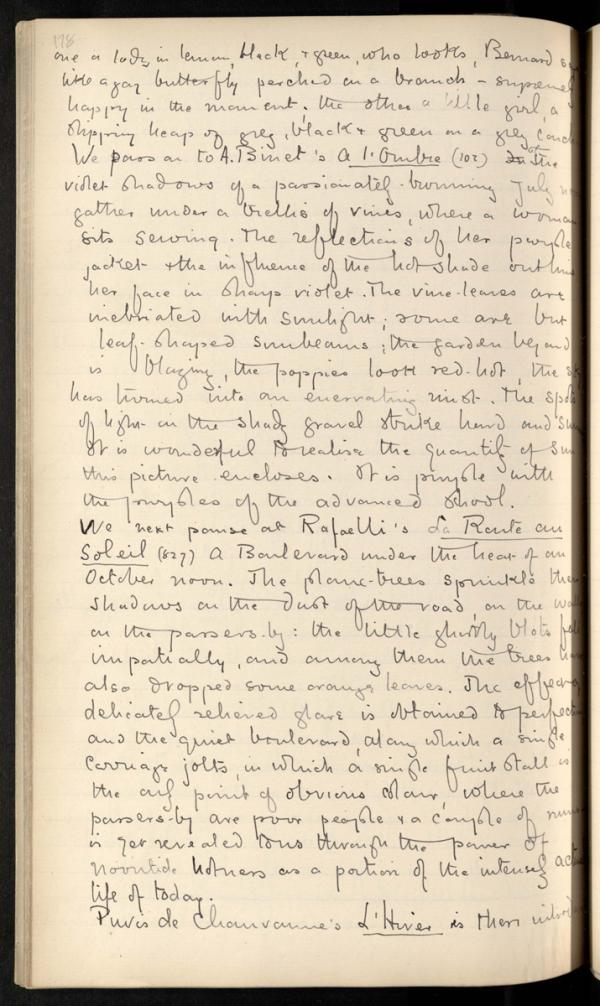 178
one a lady in lemon, black, & green, who looks, Bernard s
like a gay butterfly perched on a branch – supremely
happy in the moment. the other a little girl, a
slipping heap of grey, black & green on a grey couch
We pass on to A. Binet's A l'Ombre (102) the
violet shadows of a passionately-burning July
gather under a trellis of vines, where a woman
sits sewing. The reflections of her purple
jacket & the influence of the hot shade outline
her face in sharp violet. The vine-leaves are
inebriated with sunlight; some are but
leaf-shaped sunbeams; the garden beyond
is blazing, the poppies look red-hot, the s
has turned into an enervating mist. The spots
of light on the shady gravel strike hard and
It is wonderful to realise the quantity of sun
this picture encloses. It is purple with
the purples of the advanced school.
We next pause at Rafaelli's La Route au
Soleil (827) A Boulevard under the heat of an
October noon. The plane-trees sprinkle their
shadows on the dust of the road, on the walls
on the passers-by: the little ghostly blots fall
impatially, and among them the trees have
also dropped some orange leaves. The effect of
delicately relieved glare is obtained to perfection
and the quiet boulevard, along which a single
carriage jolts, in which a single fruit stall is
the only point of obvious colour, where the
passers-by are poor people & a couple of nuns
is yet revealed to us through the power of
noontide hotness as a portion of the intensely act
life of today.
Puvis de Chauvanne's L'Hiver is then introd